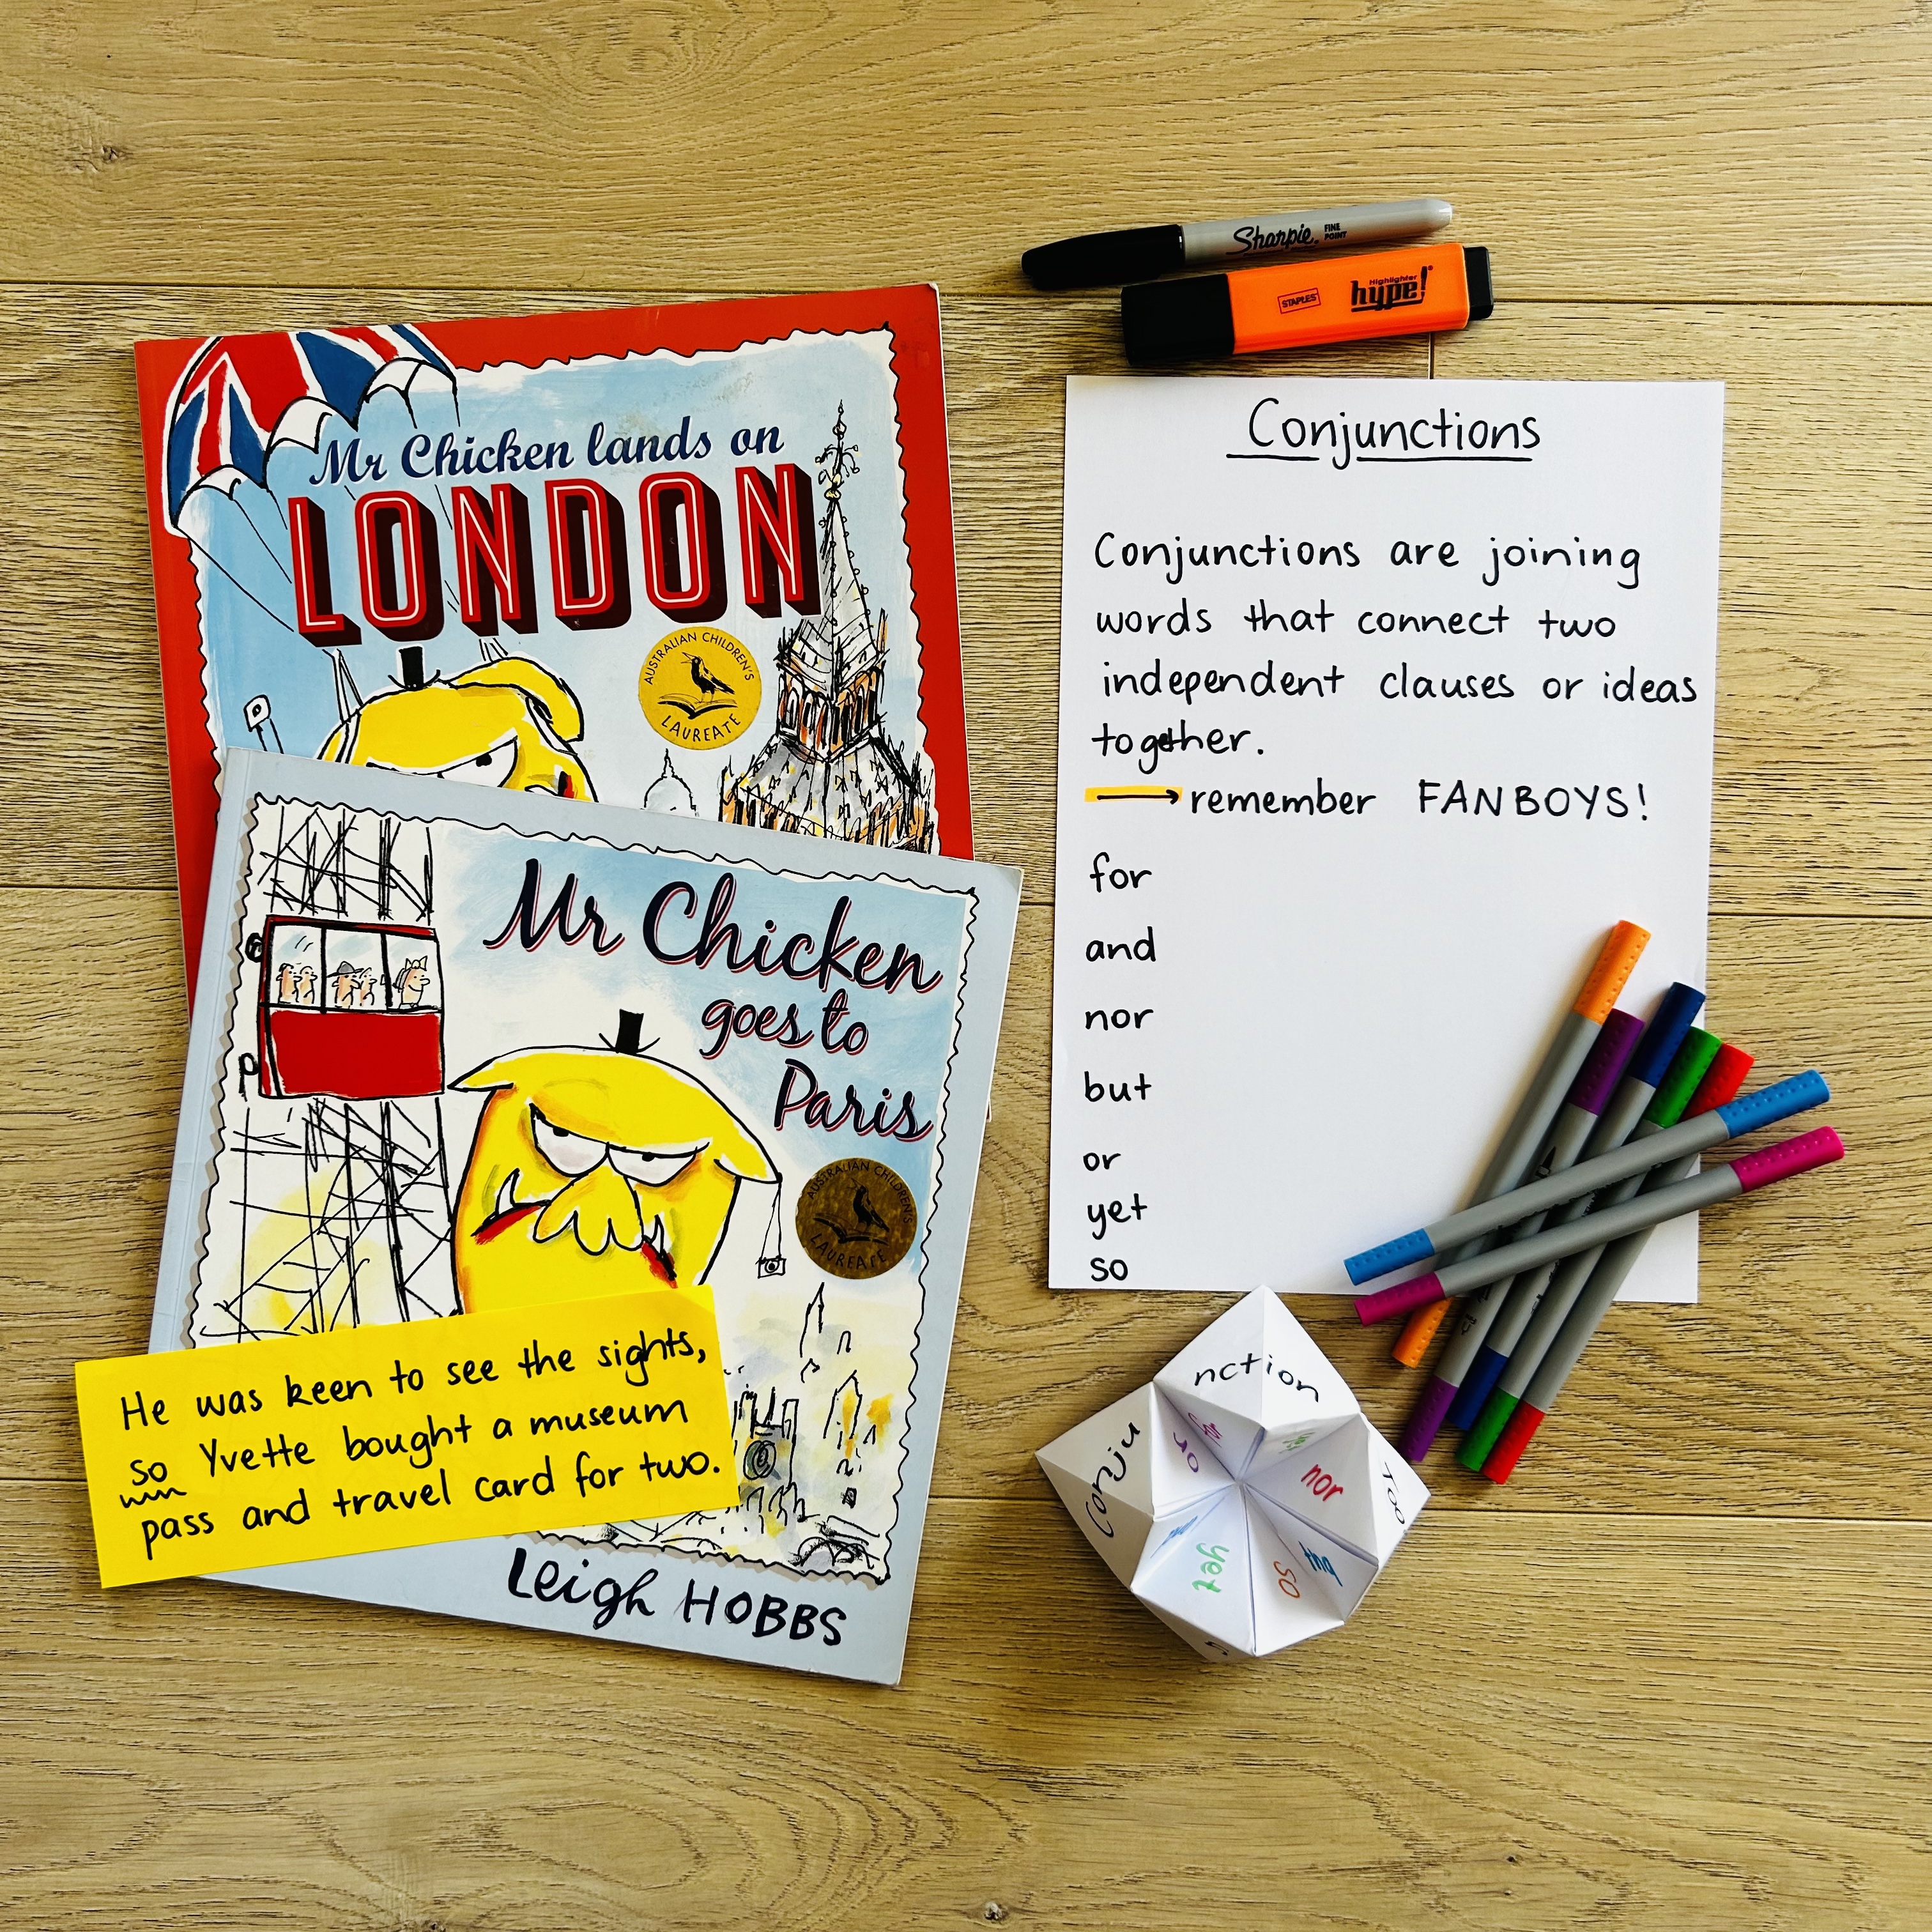 Mr Chicken lands on
LONDON
AUSTRALIAN CHILDREN'S
LAUREATE
Mr Chicken
goes to
Paris
AUSTRALIAN CHILDREN'S
LAUREATE
He was keen to see the sights,
so Yvette bought a museum
pass and travel card for two.
Leigh HOBBS
Sharpie FINE
POINT
STAPLES Highlighter
hype!
Conjunctions
Conjunctions are joining
words that connect two
independent clauses or ideas
together.
remember FANBOYS!
for
and
nor
but
or
yet
so
nction
Conju
or
nor
yet
so
but